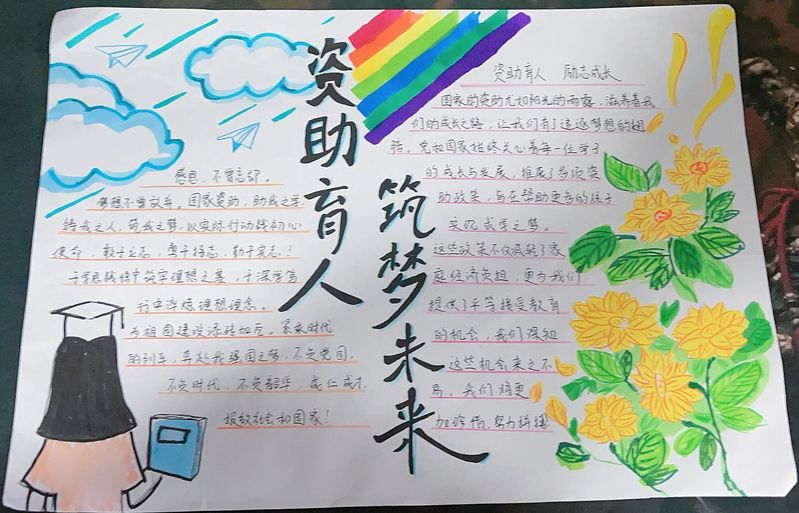 资助育人
筑梦未来
感恩，不曾忘却。
梦想不曾放弃。国家资助，助我之学
铸我之人，筑我之梦，以实际行动践初心
使命，敢于立志，勇于择志，勤于实志！
于学思践悟中筑牢理想之基，于深学笃
行中淬炼理想理念。
为祖国建设添砖加瓦。紧乘时代
的列车，奔赴我强国之梦，不负党国，
不负时代，不负韶华，成仁成才
报效社会和国家！
资助育人 励志成长
国家的资助尤如阳光的雨露，滋养着我
们的成长之路，让我们有了追逐梦想的翅
膀。党和国家始终关心着每一位学子
的成长与发展，推展了多项资
助政策，旨在帮助更多的孩子
实现求学之梦。
这些政策不仅减轻了家
庭经济负担，更为我们
提供了平等接受教育
的机会，我们深知
这些机会来之不
易，我们将更
加珍惜，努力拼搏